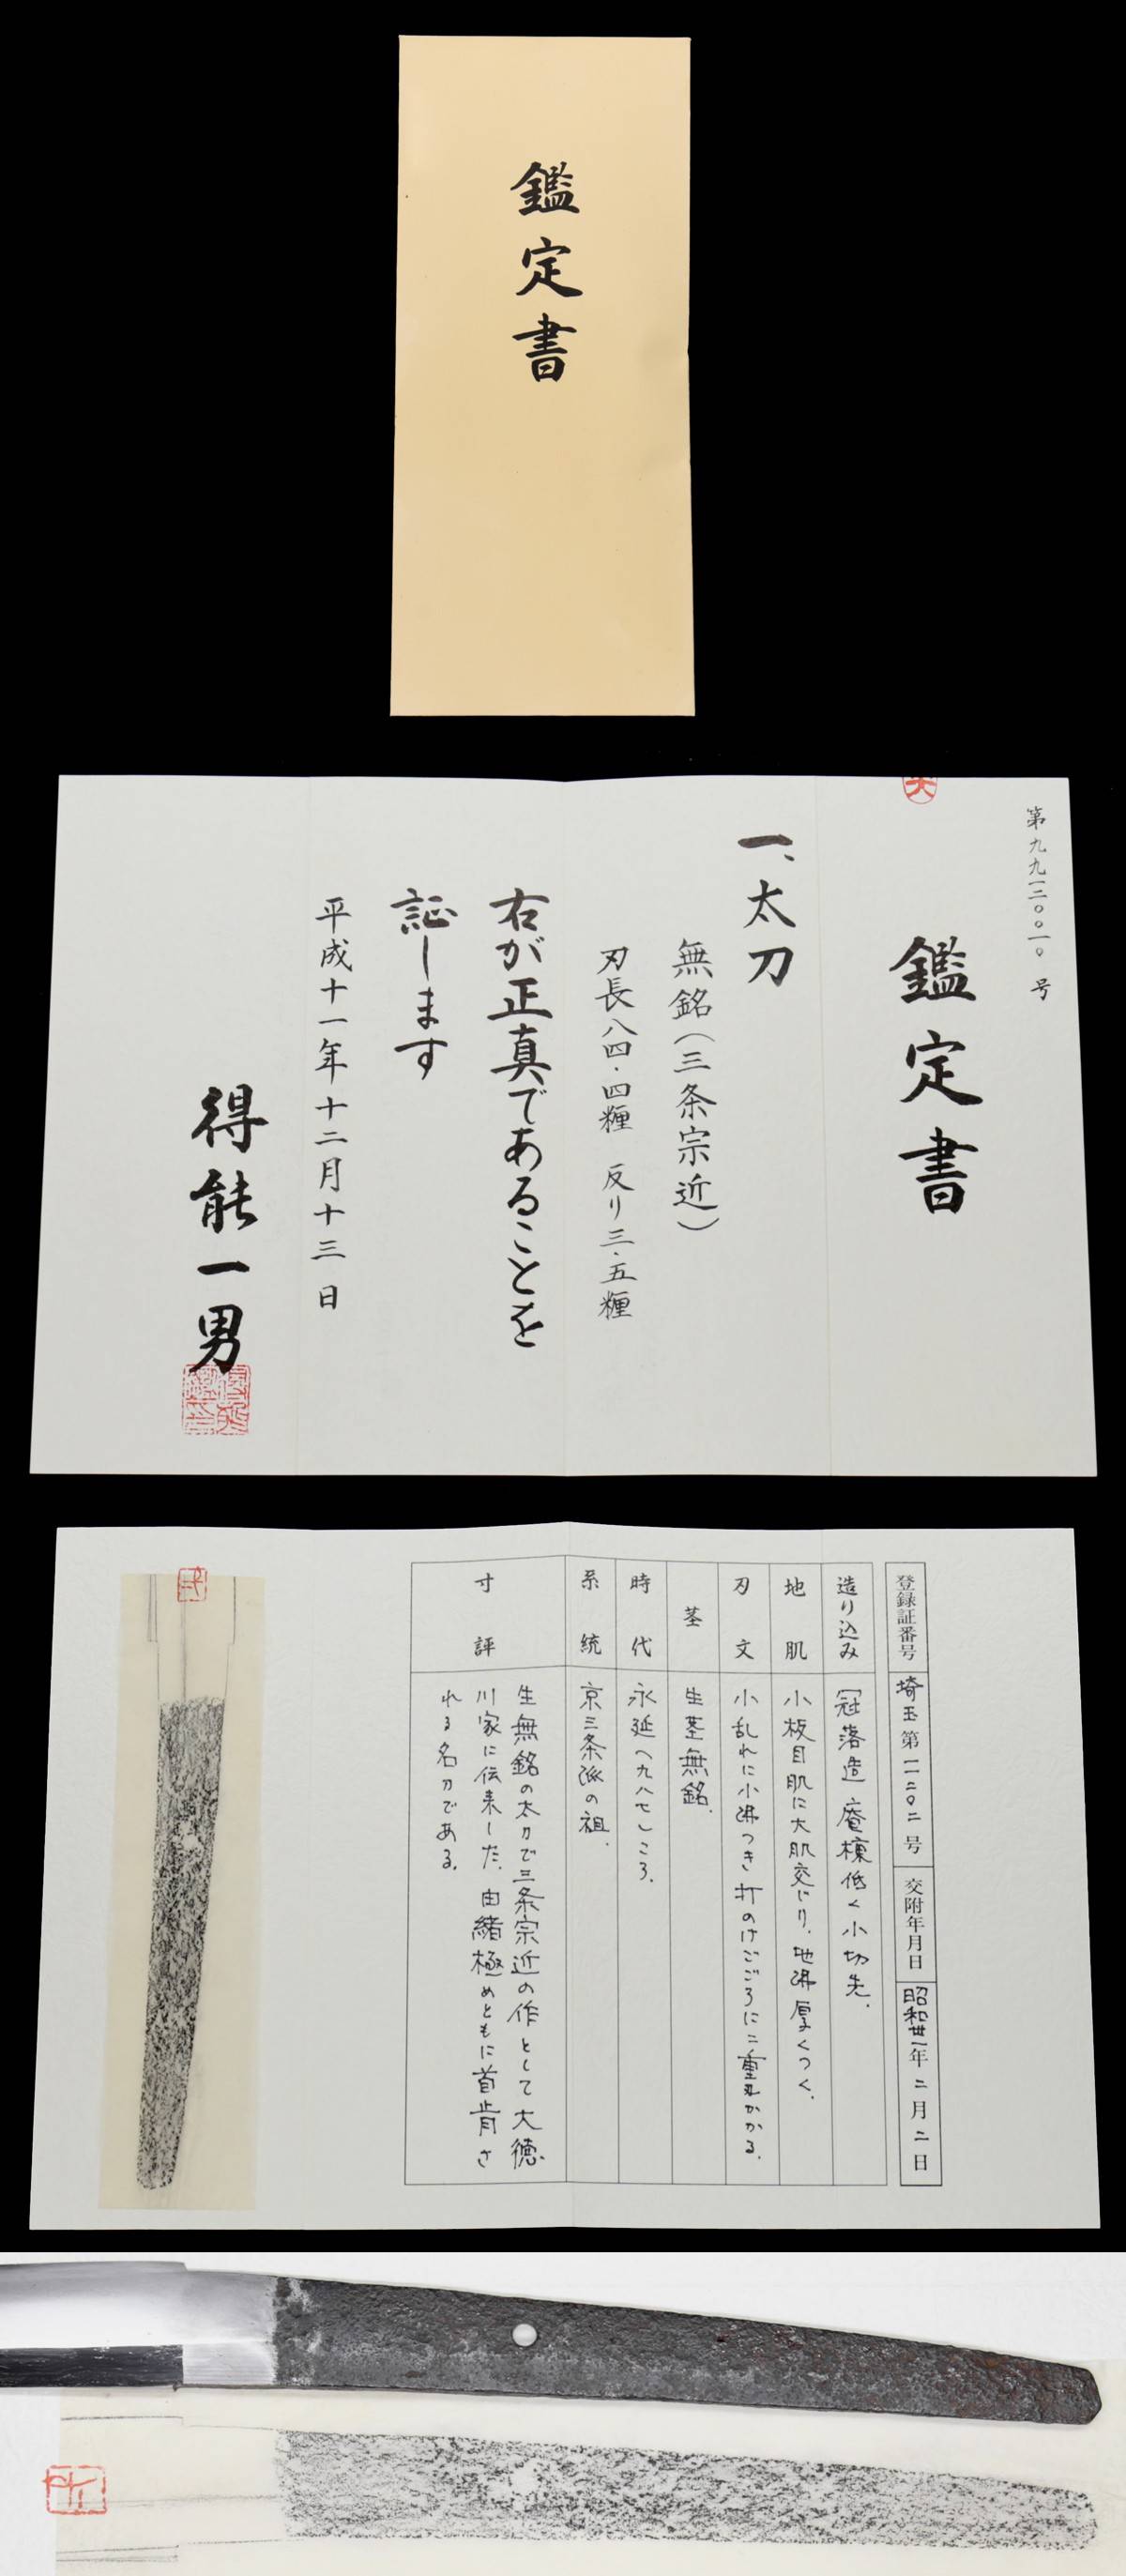 鑑定書
第九九一二〇〇一〇号
鑑定書
一、太刀
無銘(三条宗近)
刃長八四・四糎 反り三・五糎
右が正真であることを
証します
平成十一年十二月十三日
得能一男
登録証番号 埼玉第一一二〇二号 交附年月日 昭和卅一年二月二日
造り込み 冠落造 庵棟低く小切先.
地肌 小板目肌に大肌交じり、地沸厚くつく.
刃文 小乱れに小沸つき 打のけごころに二重刃かかる.
茎 生茎無銘.
時代 永延(九八七)ころ.
系統 京三条派の祖.
寸評 生無銘の太刀で三条宗近の作として大徳
川家に伝来した. 由緒極めともに首肯さ
れる名刀である.